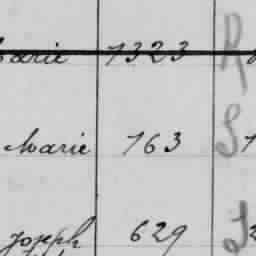 Marie 1323 R
Marie 763 S 1
Joseph 629 J 2